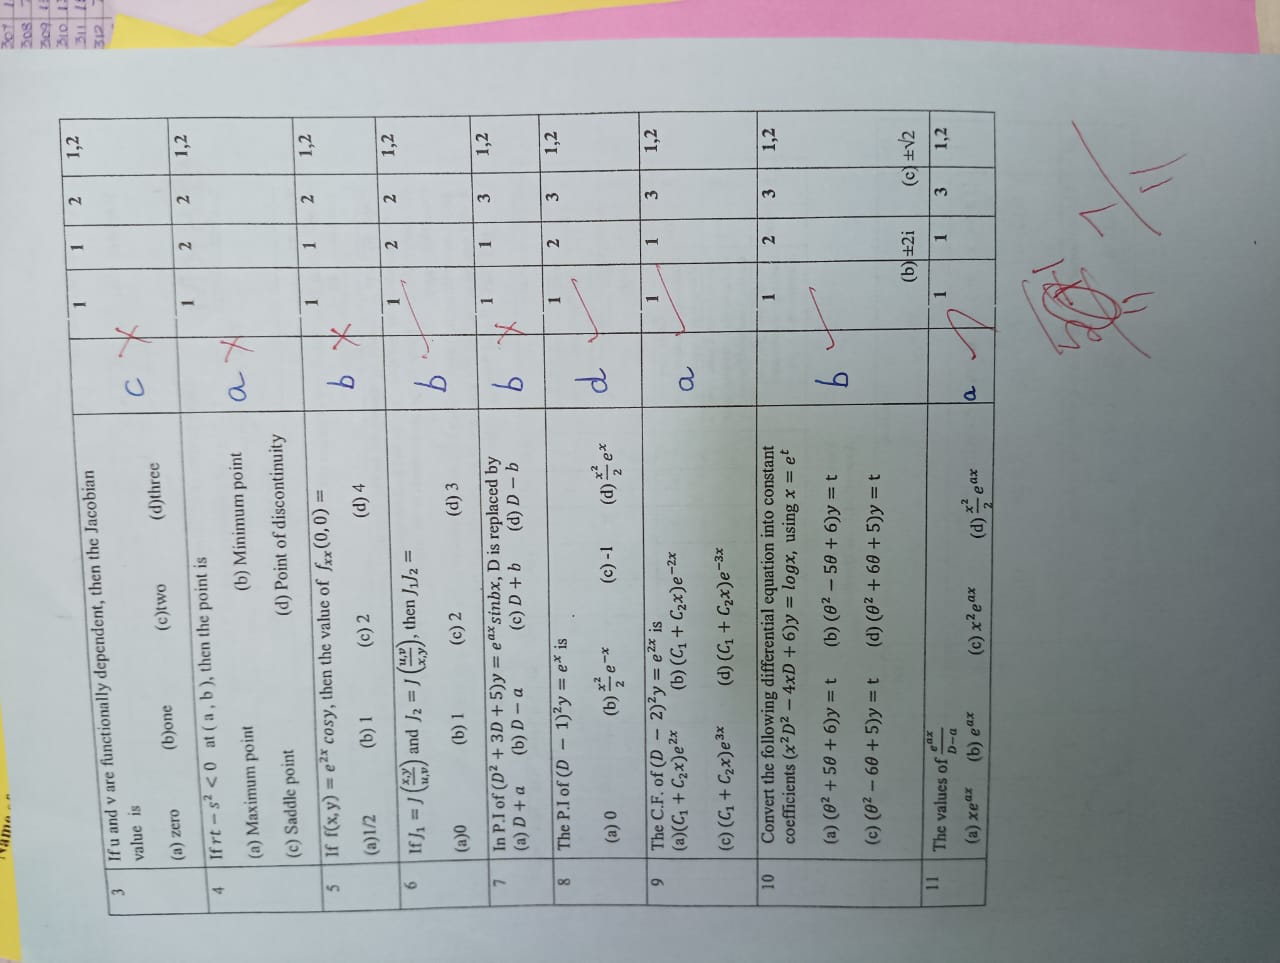 307
308
309
310
311
312
3 If u and v are functionally dependent, then the Jacobian 1 1 2 1,2
value is c ✗
(a) zero (b)one (c)two (d)three
4 If rt − s² < 0 at ( a , b ), then the point is 1 2 2 1,2
(a) Maximum point (b) Minimum point a ✗
(c) Saddle point (d) Point of discontinuity
5 If f(x,y) = e^{2x} cosy, then the value of f_{xx}(0,0) = 1 1 2 1,2
(a)1/2 (b) 1 (c) 2 (d) 4 b ✗
6 If J₁ = J(x,y/u,v) and J₂ = J(u,v/x,y), then J₁J₂ = 1 2 2 1,2
(a)0 (b) 1 (c) 2 (d) 3 b ✓
7 In P.I of (D² + 3D + 5)y = e^{ax}sinbx, D is replaced by 1 1 3 1,2
(a) D + a (b) D − a (c) D + b (d) D − b b ✗
8 The P.I of (D − 1)²y = eˣ is 1 2 3 1,2
(a) 0 (b) x²/2 e^{−x} (c) -1 (d) x²/2 eˣ d ✓
9 The C.F. of (D − 2)²y = e^{2x} is 1 1 3 1,2
(a)(C₁ + C₂x)e^{2x} (b) (C₁ + C₂x)e^{−2x} a ✓
(c) (C₁ + C₂x)e^{3x} (d) (C₁ + C₂x)e^{−3x}
10 Convert the following differential equation into constant 1 2 3 1,2
coefficients (x²D² − 4xD + 6)y = logx, using x = e^t
(a) (θ² + 5θ + 6)y = t (b) (θ² − 5θ + 6)y = t b ✓
(c) (θ² − 6θ + 5)y = t (d) (θ² + 6θ + 5)y = t
(b) ±2i (c) ±√2
11 The values of e^{ax}/D−a 1 1 3 1,2
(a) xe^{ax} (b) e^{ax} (c) x²e^{ax} (d) x²/2 e^{ax} a ✓
7/11